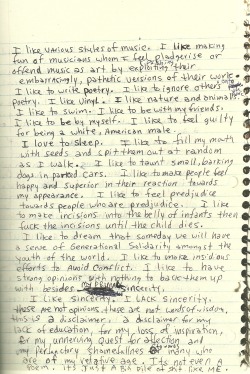 I like various styles of music. I like making
fun of musicians whom I feel plagerise or
offend music as art by exploiting their
embarrasingly, pathetic versions of their work.
I like to write poetry. I like to ignore others
poetry. I like vinyl. I like nature and animals.
I like to swim. I like to be with my friends.
I like to be by myself. I like to feel guilty
for being a white, American male.
I love to sleep. I like to fill my mouth
with seeds and spit them out at random
as I walk. I like to taunt small, barking
dogs in parked cars. I like to make people feel
happy and superior in their reaction towards
my appearance. I like to feel prejudice
towards people who are predjudice. I like
[sentence withheld]
I like to dream that someday we will have
a sense of Generational Solidarity amongst the
youth of the world. I like to make insidious
efforts to Avoid Conflict. I like to have
strong opinions with nothing to back them up
with besides my primal sincerity.
I like sincerity. I LACK Sincerity.
these are not opinions, these are not words of wisdom,
this is a disclaimer, a disclaimer for my
lack of education, for my loss of inspiration,
for my unnerving quest for affection and
my perfunctory shamefullness for many who
are of my relative age. It's not even a
poem. it's just A Big pile of shit like ME.